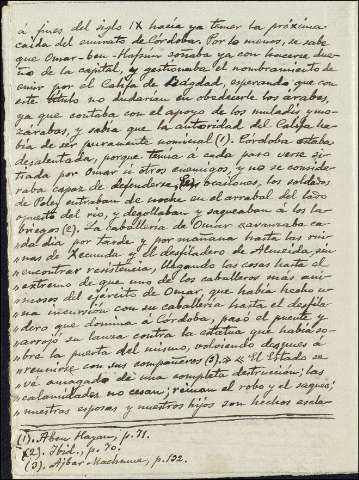 á fines del siglo IX hacía ya temer la próxima
caida del emirato de Córdoba. Por lo menos, se sabe
que Omar-ben-Hafsún soñaba ya con hacerse due-
ño de la capital, y gestionaba el nombramiento de
emir por el Califa de Bagdad, esperando que con
este título no dudarían en obedecerle los árabes,
ya que contaba con el apoyo de los muladís y mo-
zárabes, y sabía que la autoridad del Califa ha-
bía de ser puramente nominal (1). Córdoba estaba
desalentada, porque temía á cada paso verse si-
tiada por Omar ú otros enemigos, y no se conside-
raba capaz de defenderse. En ocasiones, los soldados
de Poley entraban de noche en el arrabal del lado
opuesto del río, y degollaban y saqueaban á los la-
briegos (2). La caballería de Omar avanzaba ca-
da día por tarde y por mañana hasta las rui-
"nas de Xecunda y el despiladero de Almeida, sin
"encontrar resistencia, llegando las cosas hasta el
"extremo de que uno de los caballeros más ani-
"mosos del ejército de Omar, que había hecho u-
"na incursión con su caballería hasta el despila-
"dero que domina á Córdoba, pasó el puente y
"arrojó su lanza contra la estatua que había so-
"bre la puerta del mismo, volviendo después á
"reunirse con sus compañeros (3)." "El Estado se
"ve amagado de una completa destrucción; las
"calamidades no cesan; reinan el robo y el saqueo;
"nuestras esposas y nuestros hijos son hechos escla-
(1). Aben Hayan, p. 71.
(2). Ibid., p. 70.
(3). Ajbar Machmua, p. 132.